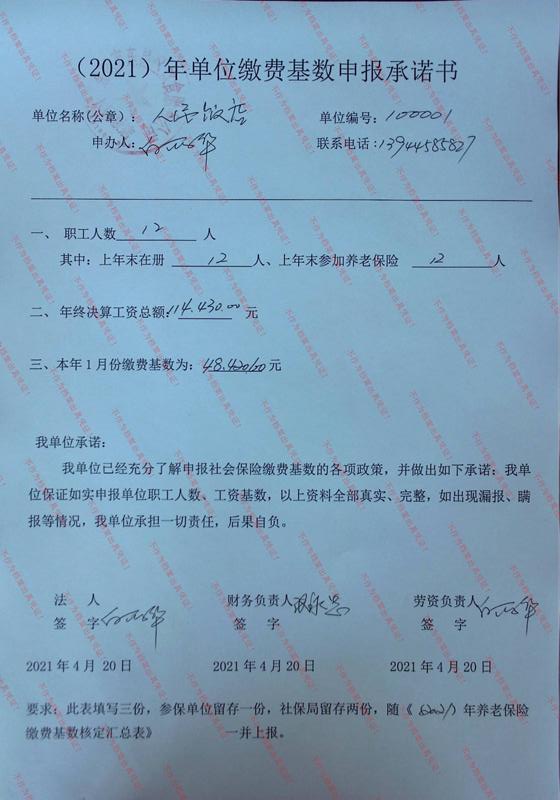 （2021）年单位缴费基数申报承诺书
单位名称(公章)： 人民饭店 单位编号：100001
申办人： 联系电话：13944585827
一、 职工人数 12 人
其中：上年末在册 12 人、上年末参加养老保险 12 人
二、年终决算工资总额：114.430.00 元
三、本年1月份缴费基数为：48.420.00 元
我单位承诺：
我单位已经充分了解申报社会保险缴费基数的各项政策，并做出如下承诺：我单
位保证如实申报单位职工人数、工资基数，以上资料全部真实、完整，如出现漏报、瞒
报等情况，我单位承担一切责任，后果自负。
法 人 财务负责人 劳资负责人
签 字 签 字 签 字
2021年4月 20日 2021年4月 20日 2021年4月 20日
要求：此表填写三份，参保单位留存一份，社保局留存两份，随《（2021）年养老保险
缴费基数核定汇总表》 一并上报。